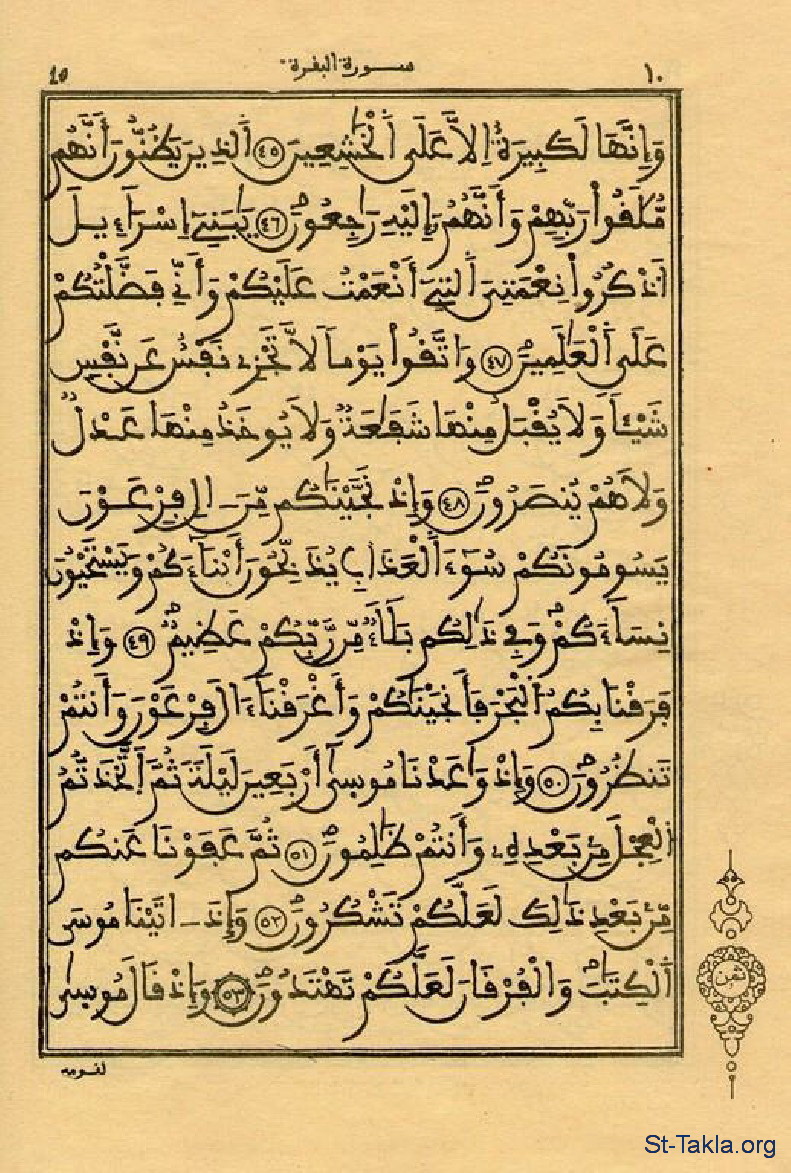 ١٠ سورة البقرة
وَإِنَّهَا لَكَبِيرَةٌ اِلاَّ عَلَى اَلْخَٰشِعِينَ ٤٥ اَلذِينَ يَظُنُّونَ أَنَّهُم
مُّلَٰقُواْ رَبِّهِمْ وَأَنَّهُمُۥٓ إِلَيْهِ رَٰجِعُونَ ٤٦ يَٰبَنِےٓ إِسْرَآءِيلَ
اَذْكُرُواْ نِعْمَتِيَ اَلتِےٓ أَنْعَمْتُ عَلَيْكُمْ وَأَنِّے فَضَّلْتُكُمْ
عَلَى اَلْعَٰلَمِينَ ٤٧ وَاتَّقُواْ يَوْماً لاَّ تَجْزِے نَفْسٌ عَن نَّفْسٍ
شَيْـٔاً وَلاَ يُقْبَلُ مِنْهَا شَفَٰعَةٌ وَلاَ يُوخَذُ مِنْهَا عَدْلٌ
وَلاَ هُمْ يُنصَرُونَ ٤٨ وَإِذْ نَجَّيْنَٰكُم مِّنَ ـ الِ فِرْعَوْنَ
يَسُومُونَكُمْ سُوٓءَ اَلْعَذَابِ يُذَبِّحُونَ أَبْنَآءَكُمْ وَيَسْتَحْيُونَ
نِسَآءَكُمْ وَفِے ذَٰلِكُم بَلَآءٌ مِّن رَّبِّكُمْ عَظِيمٌ ٤٩ وَإِذْ
فَرَقْنَا بِكُمُ اَلْبَحْرَ فَأَنجَيْنَٰكُمْ وَأَغْرَقْنَآ ءَالَ فِرْعَوْنَ وَأَنتُمْ
تَنظُرُونَ ٥٠ وَإِذْ وَٰعَدْنَا مُوسَىٰٓ أَرْبَعِينَ لَيْلَةً ثُمَّ اَتَّخَذتُّمُ
اُلْعِجْلَ مِنۢ بَعْدِهِۦ وَأَنتُمْ ظَٰلِمُونَ ٥١ ثُمَّ عَفَوْنَا عَنكُم
مِّنۢ بَعْدِ ذَٰلِكَ لَعَلَّكُمْ تَشْكُرُونَ ٥٢ وَإِذَ ـ اتَيْنَا مُوسَى
اَلْكِتَٰبَ وَالْفُرْقَانَ لَعَلَّكُمْ تَهْتَدُونَ ٥٣ وَإِذْ قَالَ مُوسَىٰ
ثمن
لقومه
St-Takla.org